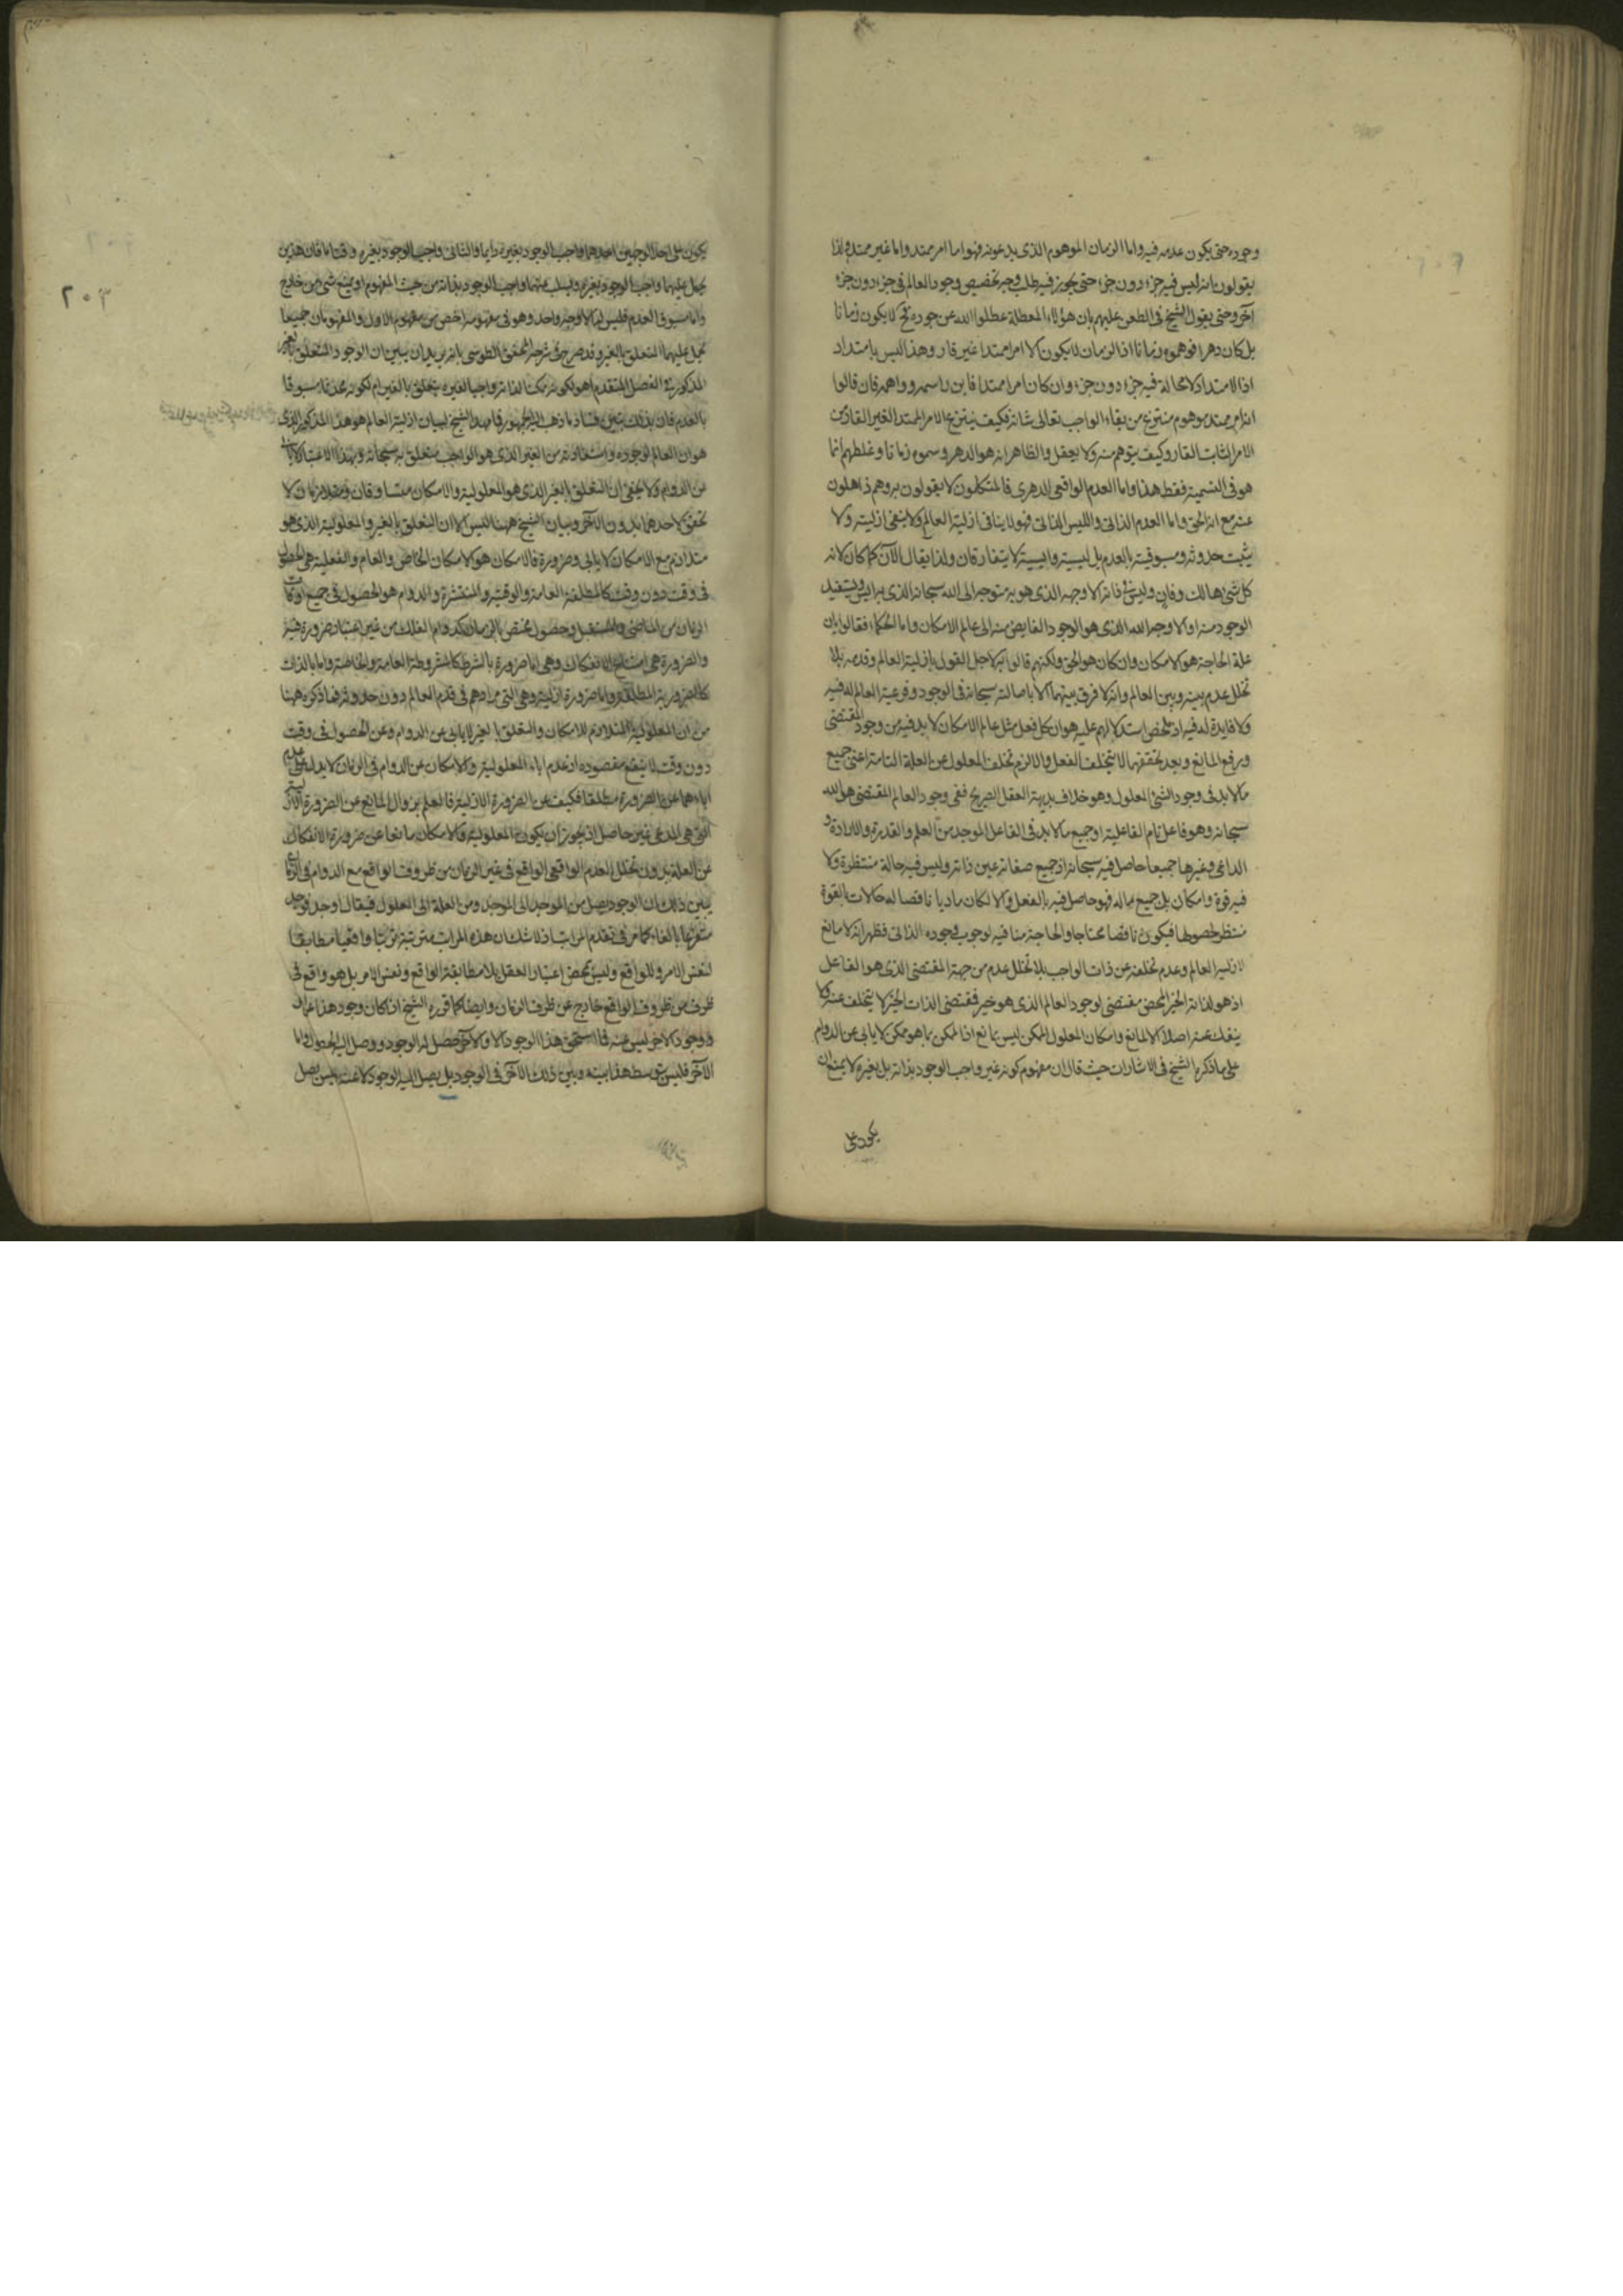 وجوده حتى يكون عدمه فيه واما الزمان الموهوم الذى يدعونه فهو اما امر ممتد واما غير ممتد فاذا
يقولون انه ليس فيه جزء دون جزء حتى يجوز فيه طلب وجه تخصيص وجود العالم فى جزء دون جزء
آخر وحتى يقول الشيخ فى الطعن عليهم بان هؤلاء المعطلة عطلوا الله عن جوده فح لا يكون زمانا
بل كان دهرا فوهموه زمانا اذ الزمان لا يكون الا امرا ممتدا غير قار وهذا ليس بامتداد
اذ الامتداد لا محالة فيه جزء دون جزء وان كان امرا ممتدا فاين راسمه وواهمه فان قالوا
انه امر ممتد موهوم منتزع من بقاء الواجب تعالى شانه فكيف ينتزع الامر الممتد الغير القار من
الامر الثابت القار وكيف يتوهم منه ولا يعقل والظاهر انه هو الدهر وسموه زمانا وغلطهم انما
هو فى التسمية فقط هذا واما العدم الواقعى الدهرى فالمتكلمون لا يقولون به وهم ذاهلون
عنه مع انه الحق واما العدم الذاتى والليس الذاتى فهو لا ينافى ازلية العالم ولا ينفى ازليته ولا
يثبت حدوثه ومسبوقيته بالعدم بل ليسيته وايسيته لا يتفارقان ولذا يقال الآن كما كان لانه
كل شئ هالك وفان وليس فى ذاته الا وجهه الذى هو به متوجه الى الله سبحانه الذى به ايس ويستفيد
الوجود منه او الا وجه الله الذى هو الوجود الفايض منه الى عالم الامكان واما الحكماء فقالوا بان
علة الحاجة هو الامكان وان كان هو الحق ولكنهم قالوا به لاجل القول بازلية العالم وقدمه بلا
تخلل عدم بينه وبين العالم وانه لا فرق بينهما الا باصالته سبحانه فى الوجود وفرعية العالم له فيه
ولا فايدة له فيه اذ ملخص استدلالهم عليه هو ان كل فعل مثل عالم الامكان لا بد فيه من وجود المقتضى
ورفع المانع وبعد تحققهما لا يتخلف الفعل والا لزم تخلف المعلول عن العلة التامة اعنى جميع
ما لا بد فى وجود الشئ المعلول وهو خلاف بديهة العقل الصريح ففى وجود العالم المقتضى هو الله
سبحانه وهو فاعل تام الفاعلية اذ جميع ما لا بد فى الفاعل الموجد من العلم والقدرة والارادة و
الداعى وغيرها جميعا حاصل فيه سبحانه اذ جميع صفاته عين ذاته وليس فيه حالة منتظرة ولا
فيه قوة وامكان بل جميع ماله فهو حاصل فيه بالفعل والا لكان ماديا ناقصا له حالات بالقوة
منتظر لحصولها فيكون ناقصا محتاجا والحاجة منافية لوجوب وجوده الذاتى فظهر انه لا مانع
لازلية العالم وعدم تخلفه عن ذات الواجب بلا تخلل عدم من جهة المقتضى الذى هو الفاعل
اذ هو لذاته الخير المحض مقتضى لوجود العالم الذى هو خير فمقتضى الذات الخير لا يتخلف عنه ولا
ينفك عنه اصلا الا لمانع وامكان المعلول الممكن ليس بمانع اذ الممكن بما هو ممكن لا يابى عن الدوام
على ما ذكره الشيخ فى الاشارات حيث قال ان مفهوم كونه غير واجب الوجود بذاته بل بغيره لا يمنع ان
يكون على
يكون على احد الوجهين احدهما واجب الوجود بغيره دايما والثانى واجب الوجود بغيره وقتا ما فان هذين
يحمل عليهما واجب الوجود بغيره ويسلب عنهما واجب الوجود بذاته من حيث المفهوم او يمنع شئ من خارج
واما مسبوق العدم فليس له الا وجه واحد وهو فى مفهومه اخص من مفهوم الاول والمفهومان جميعا
يحمل عليهما التعلق بالغير وقد صرح فى شرحه المحقق الطوسى بانه يريد ان يبين ان الوجود المتعلق بالغير
المذكور فى الفصل المتقدم اهو لكونه ممكنا لذاته واجبا لغيره يتعلق بالغير ام لكونه محدثا مسبوقا
بالعدم فان بذلك يتبين فساد ما ذهب اليه الجمهور فما مهده الشيخ لبيان ازلية العالم هو هذا المذكور الذى
هو ان العالم لوجوده واستفاوته من الغير الذى هو الواجب متعلق به سبحانه وبهذا الاعتبار لا يابى
من الدوام ولا يخفى ان التعلق بالغير الذى هو المعلولية والامكان متساوقان ومتلازمان لا
تحقق لاحدهما بدون الآخر وبيان الشيخ ههنا ليس الا ان التعلق بالغير والمعلولية الذى هو
متلازم مع الامكان لا يابى وضرورة فالامكان هو الامكان الخاص والعام والفعلية هى الحصول
فى وقت دون وقت كالمطلقة العامة والوقتية والمنتشرة والدوام هو الحصول فى جميع اوقات
الزمان من الماضى والمستقبل وحصول مختص بالزمان كدوام الفلك من غير اعتبار ضرورة فيه
والضرورة هى امتناع الانفكاك وهى اما ضرورة بالشرط كالمشروطة العامة والخاصة واما بالذات
كالضرورية المطلقة واما ضرورة ازلية وهى التى مرادهم فى قدم العالم دون حدوثه فما ذكره ههنا
من ان المعلولية المتلازم للامكان والتعلق بالغير لا يابى عن الدوام وعن الحصول فى وقت
دون وقت لا ينفع مقصوده اذ عدم اباء المعلولية والامكان عن الدوام فى الزمان لا يدل على عدم
اباءهما عن الضرورة مطلقا فكيف عن الضرورة الازلية فالعلم بزوال المانع عن الضرورة الازلية
التى هى المدعى غير حاصل اذ يجوز ان يكون المعلولية والامكان مانعا عن ضرورة الانفكاك
عن العلة بدون تخلل العدم الواقعى الواقع فى غير الزمان من ظروف الواقع مع الدوام فى الزمان
يبين ذلك ان الوجود يصل من الموجد الى الموجد ومن العلة الى المعلول فيقال اوجد فوجد
متفرعا بالفاء كما مر فى تقدم المراتب فلا شك ان هذه المراتب مترتبة ترتبا واقعيا مطابقا
لنفس الامر وللواقع وليس بمحض اعتبار العقل بلا مطابقة الواقع ونفس الامر بل هو واقع فى
ظرف من ظروف الواقع خارج عن ظرف الزمان وايضا كما قرره الشيخ اذا كان وجود هذا عن آخر
ووجود الاخر ليس عنه فما استحق هذا الوجود الا والآخر حصل له الوجود ووصل اليه الحصول واما
الآخر فليس يتوسط هذا بينه وبين ذلك الآخر فى الوجود بل يصل اليه الوجود لا عنه وليس يصل
٢٠٣